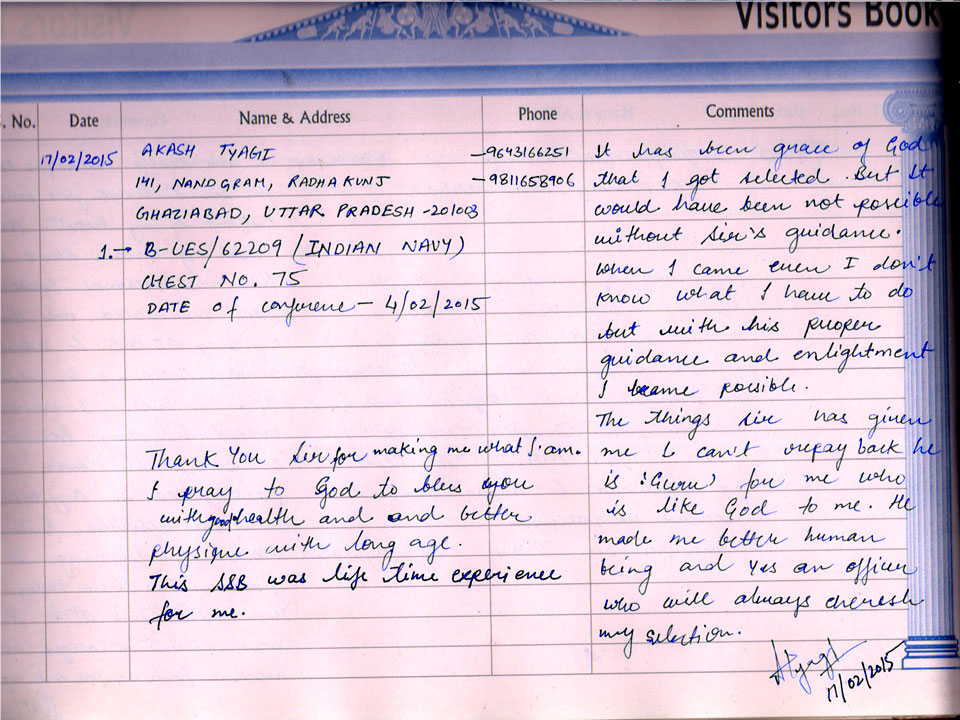 Visitors Book
S. No. Date Name & Address Phone Comments
17/02/2015 AKASH TYAGI - 9643166251
141, NANDGRAM, RADHA KUNJ - 9811658906
GHAZIABAD, UTTAR PRADESH - 201003
1. → B-UES/62209 (INDIAN NAVY)
CHEST NO. 75
DATE of conference - 4/02/2015
Thank You Sir for making me what I am.
I pray to God to bless you
with good health and and better
physique with long age.
This SSB was life time experience
for me.
It has been grace of God
that I got selected. But it
would have been not possible
without Sir's guidance.
When I came even I don't
know what I have to do
but with his proper
guidance and enlightment
I became possible.
The things sir has given
me I can't repay back he
is 'Guru' for me who
is like God to me. He
made me better human
being and Yes an officer
who will always cheresh
my selection.
ATyagi
17/02/2015